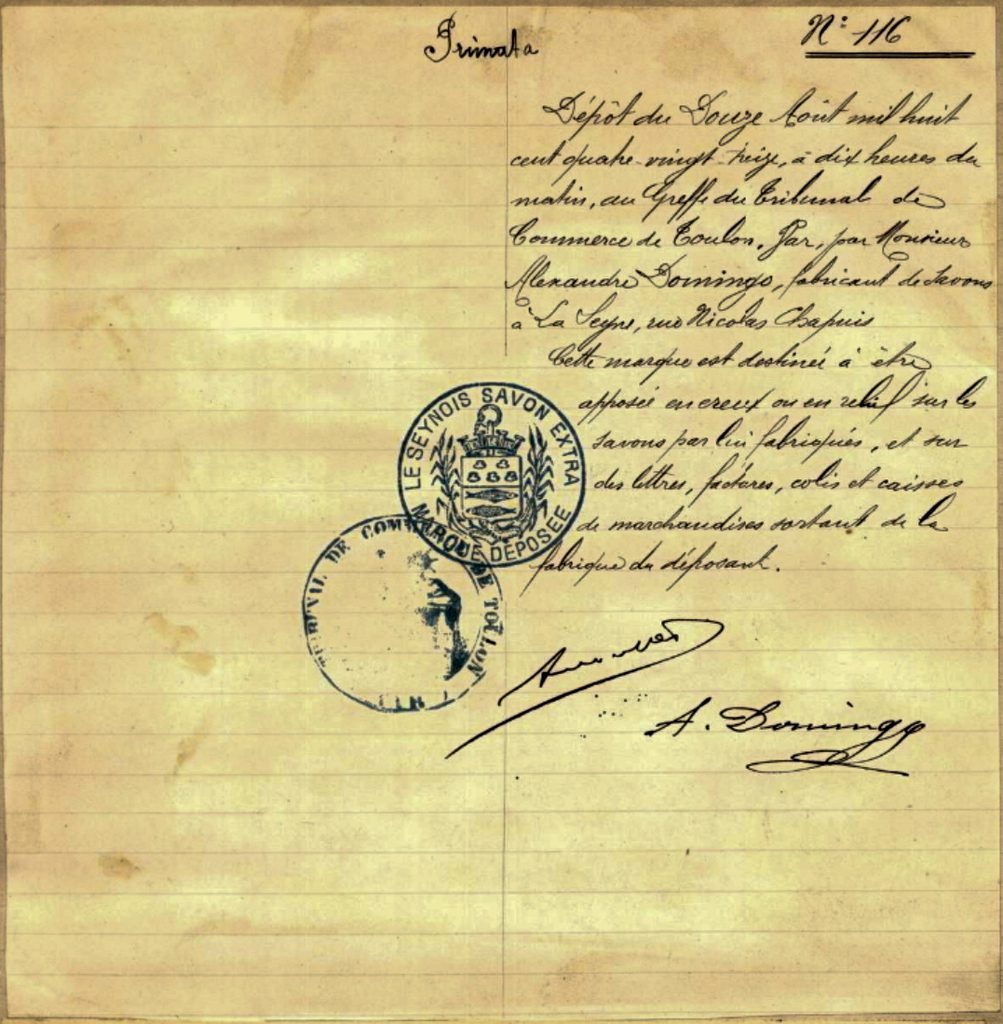 Primata
N° 116
Dépôt du Douze Août mil huit
cent quatre-vingt-treize, à dix heures du
matin, au Greffe du Tribunal de
Commerce de Toulon. Par, par Monsieur
Alexandre Domingo, fabricant de savons
à La Seyne, rue Nicolas Chapuis
Cette marque est destinée à être
apposée en creux ou en relief sur les
savons par lui fabriqués, et sur
des lettres, factures, colis et caisses
de marchandises sortant de la
fabrique du déposant.
LE SEYNOIS SAVON EXTRA
MARQUE DÉPOSÉE
TRIBUNAL DE COMMERCE DE TOULON
A. Domingo